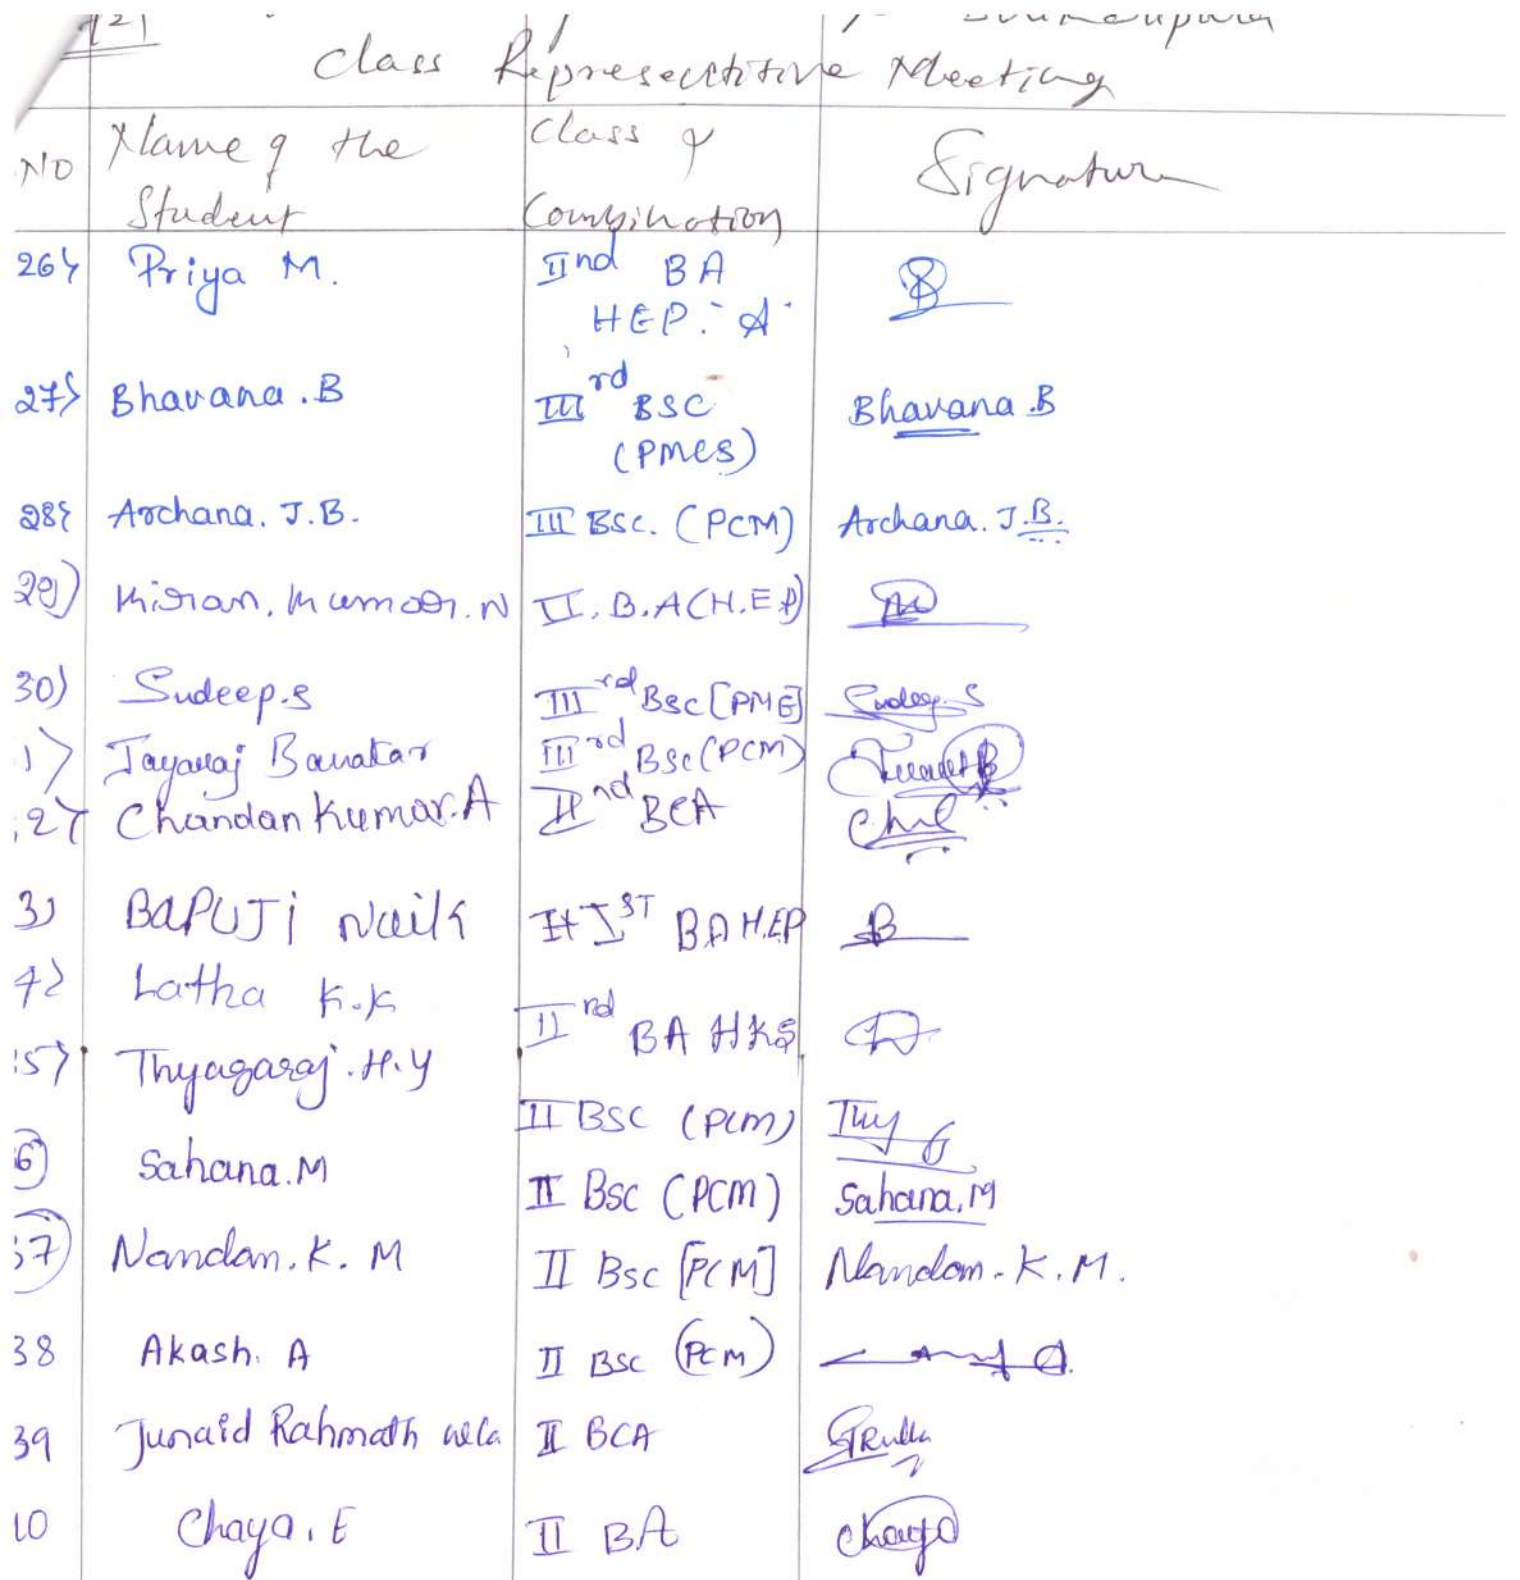 Class Representitive Meeting
NO Name of the Student Class & Combination Signature
26) Priya M. IInd BA
HEP. "A"
27) Bhavana .B IIIrd BSC Bhavana .B
(PMCS)
28) Archana. J.B. III BSC. (PCM) Archana. J.B.
29) Kiran. Kumar. N II. B.A (H.E.P)
30) Sudeep.S IIIrd Bsc [PME] Sudeep. S
1) Jayaraj Banakar IIIrd Bsc (PCM)
2) Chandan Kumar. A IInd BCA
3) BAPUJi Naik IST BA H.EP B
4) Latha K.K IIrd BA HKS
5) Thyagaraj. H.Y II BSC (PCM) Thy
6) Sahana. M II Bsc (PCM) Sahana. M
37) Nandan. K. M II Bsc [PCM] Nandan. K. M.
38 Akash. A II BSC (PCM)
39 Junaid Rahmath II BCA
10 Chaya. E II BA Chaya